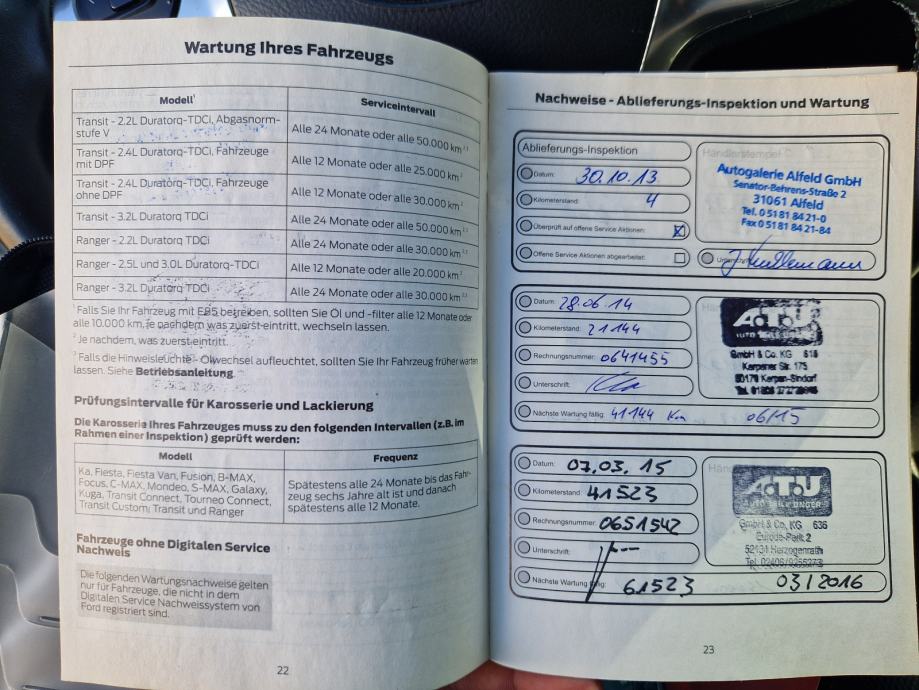 Wartung Ihres Fahrzeugs
Modell¹ Serviceintervall
Transit - 2.2L Duratorq-TDCi, Abgasnorm-
stufe V Alle 24 Monate oder alle 50.000 km
Transit - 2.4L Duratorq-TDCi, Fahrzeuge
mit DPF Alle 12 Monate oder alle 25.000 km
Transit - 2.4L Duratorq-TDCi, Fahrzeuge
ohne DPF Alle 12 Monate oder alle 30.000 km
Transit - 3.2L Duratorq TDCi Alle 24 Monate oder alle 50.000 km
Ranger - 2.2L Duratorq TDCi Alle 24 Monate oder alle 30.000 km
Ranger - 2.5L und 3.0L Duratorq-TDCi Alle 12 Monate oder alle 20.000 km
Ranger - 3.2L Duratorq TDCi Alle 24 Monate oder alle 30.000 km
¹ Falls Sie Ihr Fahrzeug mit E85 betreiben, sollten Sie Öl und -filter alle 12 Monate oder
alle 10.000 km, je nachdem was zuerst eintritt, wechseln lassen.
² Je nachdem, was zuerst eintritt.
³ Falls die Hinweisleuchte - Ölwechsel aufleuchtet, sollten Sie Ihr Fahrzeug früher warten
lassen. Siehe Betriebsanleitung.
Prüfungsintervalle für Karosserie und Lackierung
Die Karosserie Ihres Fahrzeuges muss zu den folgenden Intervallen (z.B. im
Rahmen einer Inspektion) geprüft werden:
Modell Frequenz
Ka, Fiesta, Fiesta Van, Fusion, B-MAX,
Focus, C-MAX, Mondeo, S-MAX, Galaxy,
Kuga, Transit Connect, Tourneo Connect,
Transit Custom, Transit und Ranger
Spätestens alle 24 Monate bis das Fahr-
zeug sechs Jahre alt ist und danach
spätestens alle 12 Monate.
Fahrzeuge ohne Digitalen Service
Nachweis
Die folgenden Wartungsnachweise gelten
nur für Fahrzeuge, die nicht in dem
Digitalen Service Nachweissystem von
Ford registriert sind.
22
Nachweise - Ablieferungs-Inspektion und Wartung
Ablieferungs-Inspektion
Datum: 30.10.13
Kilometerstand: 4
Überprüft auf offene Service Aktionen:
Offene Service Aktionen abgearbeitet:
Händlerstempel
Autogalerie Alfeld GmbH
Senator-Behrens-Straße 2
31061 Alfeld
Tel. 0 51 81 84 21-0
Fax 0 51 81 84 21-84
Datum: 28.06.14
Kilometerstand: 21144
Rechnungsnummer: 0641455
Unterschrift:
Nächste Wartung fällig: 41144 Km 06/15
A.T.U
GmbH & Co. KG
Kerpener Str. 175
50170 Kerpen-Sindorf
Datum: 07.03.15
Kilometerstand: 41523
Rechnungsnummer: 0651542
Unterschrift:
Nächste Wartung fällig: 61523 03/2016
A.T.U
AUTO TEILE UNGER
GmbH & Co. KG 636
Europe-Park 2
52134 Herzogenrath
23